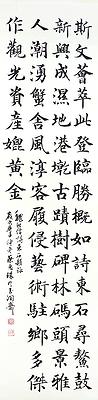 斯文薈萃此登臨勝概如詩東石尋鰲鼓
新興成濕地港墩古蹟樹碑林碼頭景雅
人潮湧蟹舍風淳履侵藝術駐鄉多傑
作觀光資產媲黃金